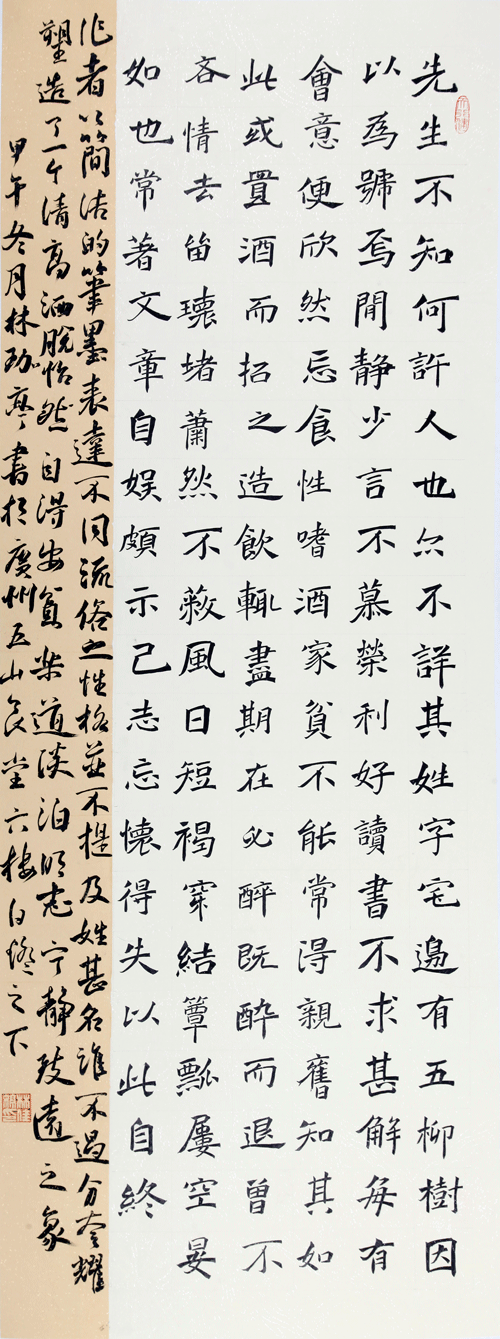 先生不知何許人也亦不詳其姓字宅邊有五柳樹因
以為號焉閒靜少言不慕榮利好讀書不求甚解每有
會意便欣然忘食性嗜酒家貧不能常得親舊知其如
此或置酒而招之造飲輒盡期在必醉既醉而退曾不
吝情去留環堵蕭然不蔽風日短褐穿結簞瓢屢空晏
如也常著文章自娛頗示己志忘懷得失以此自終
作者以簡潔的筆墨表達不同流俗之性格並不提及姓甚名誰不過分夸耀
塑造了一个清高洒脫怡然自得安貧樂道淡泊明志宁靜致遠之象
甲午冬月林亭書於廣州五山良堂六樓白之下